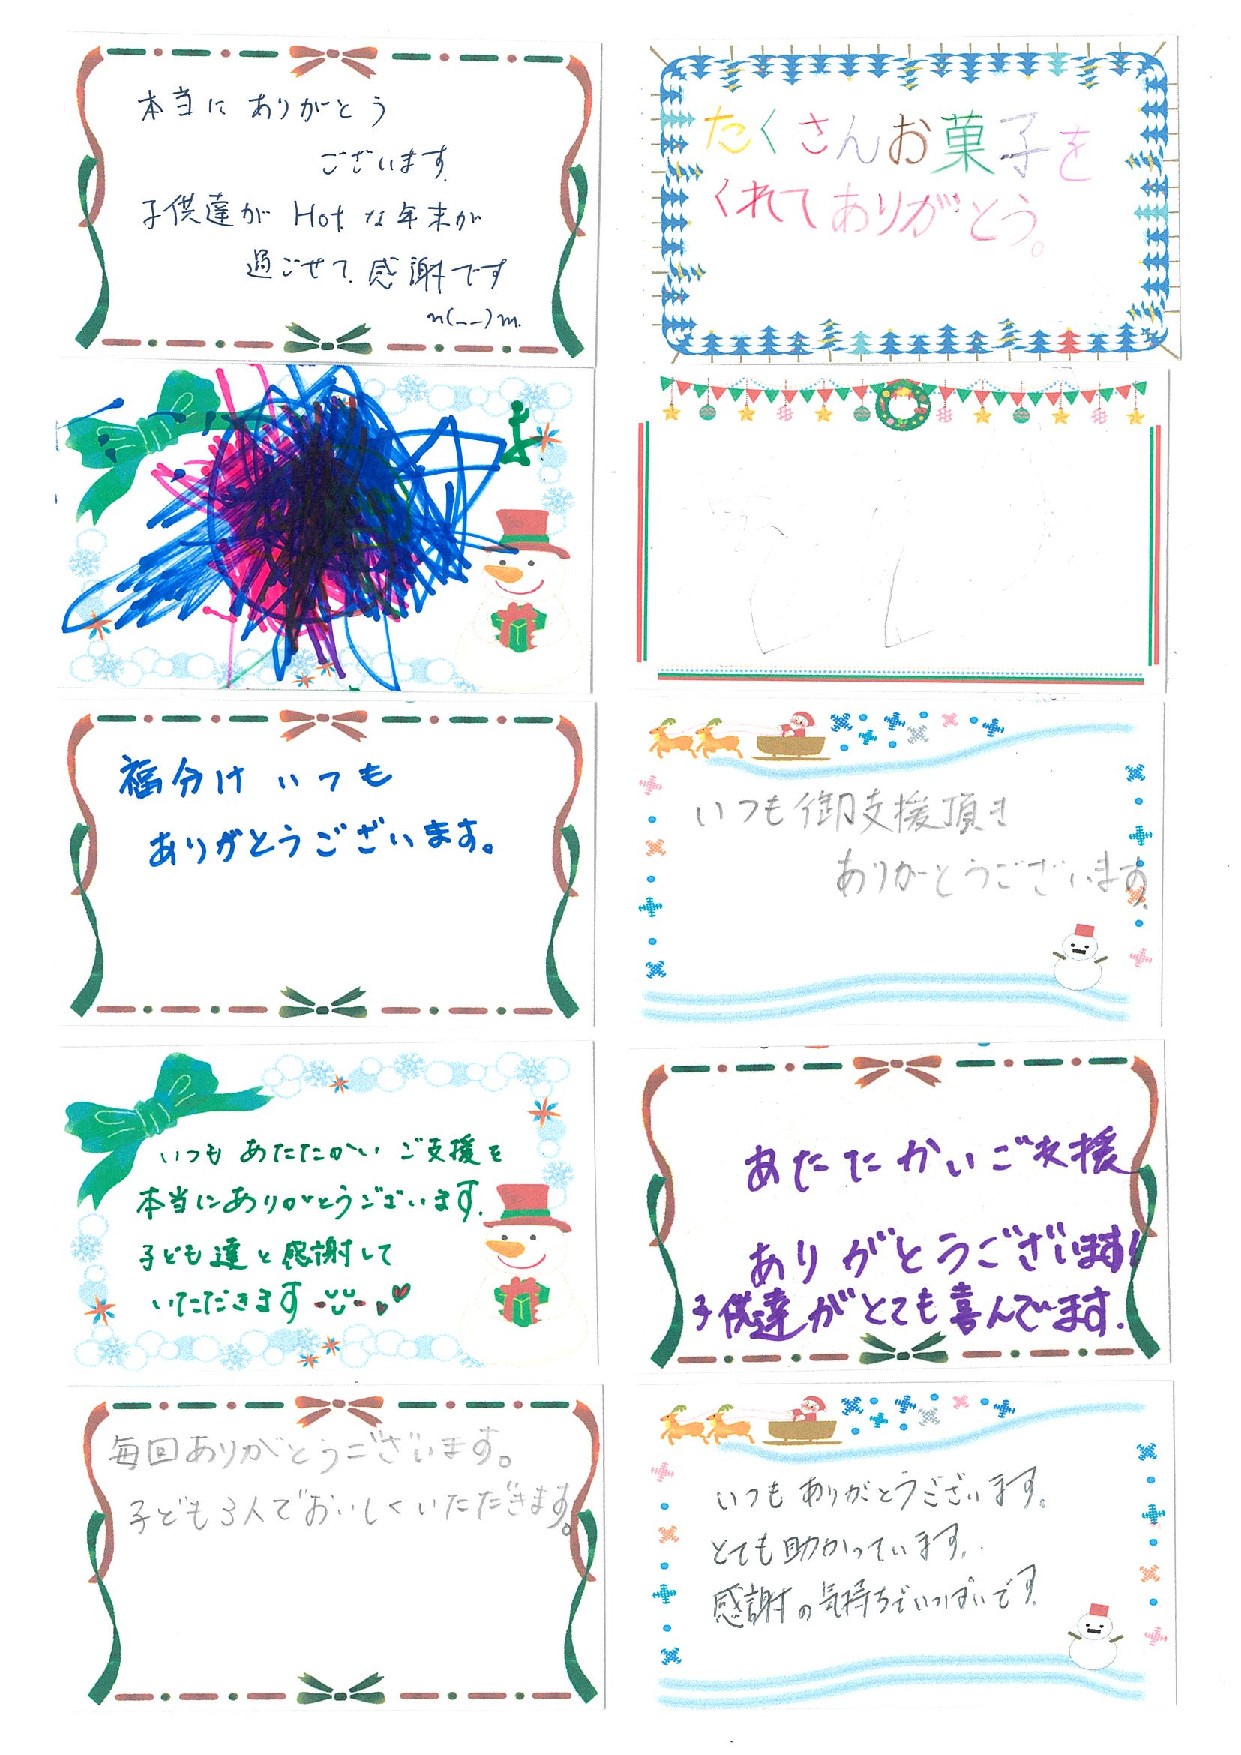 本当に ありがとう
ございます
子供達が Hot な年末が
過ごせて、感謝です
m(__)m
たくさんお菓子を
くれてありがとう。
福分け いつも
ありがとうございます。
いつも御支援頂き
ありがとうございます。
いつも あたたかい ご支援を
本当にありがとうございます。
子ども達と感謝して
いただきます
あたたかいご支援
ありがとうございます!
子供達がとても喜んでいます.
毎回ありがとうございます。
子ども3人でおいしくいただきます。
いつもありがとうございます。
とても助かっています。
感謝の気持ちでいっぱいです。